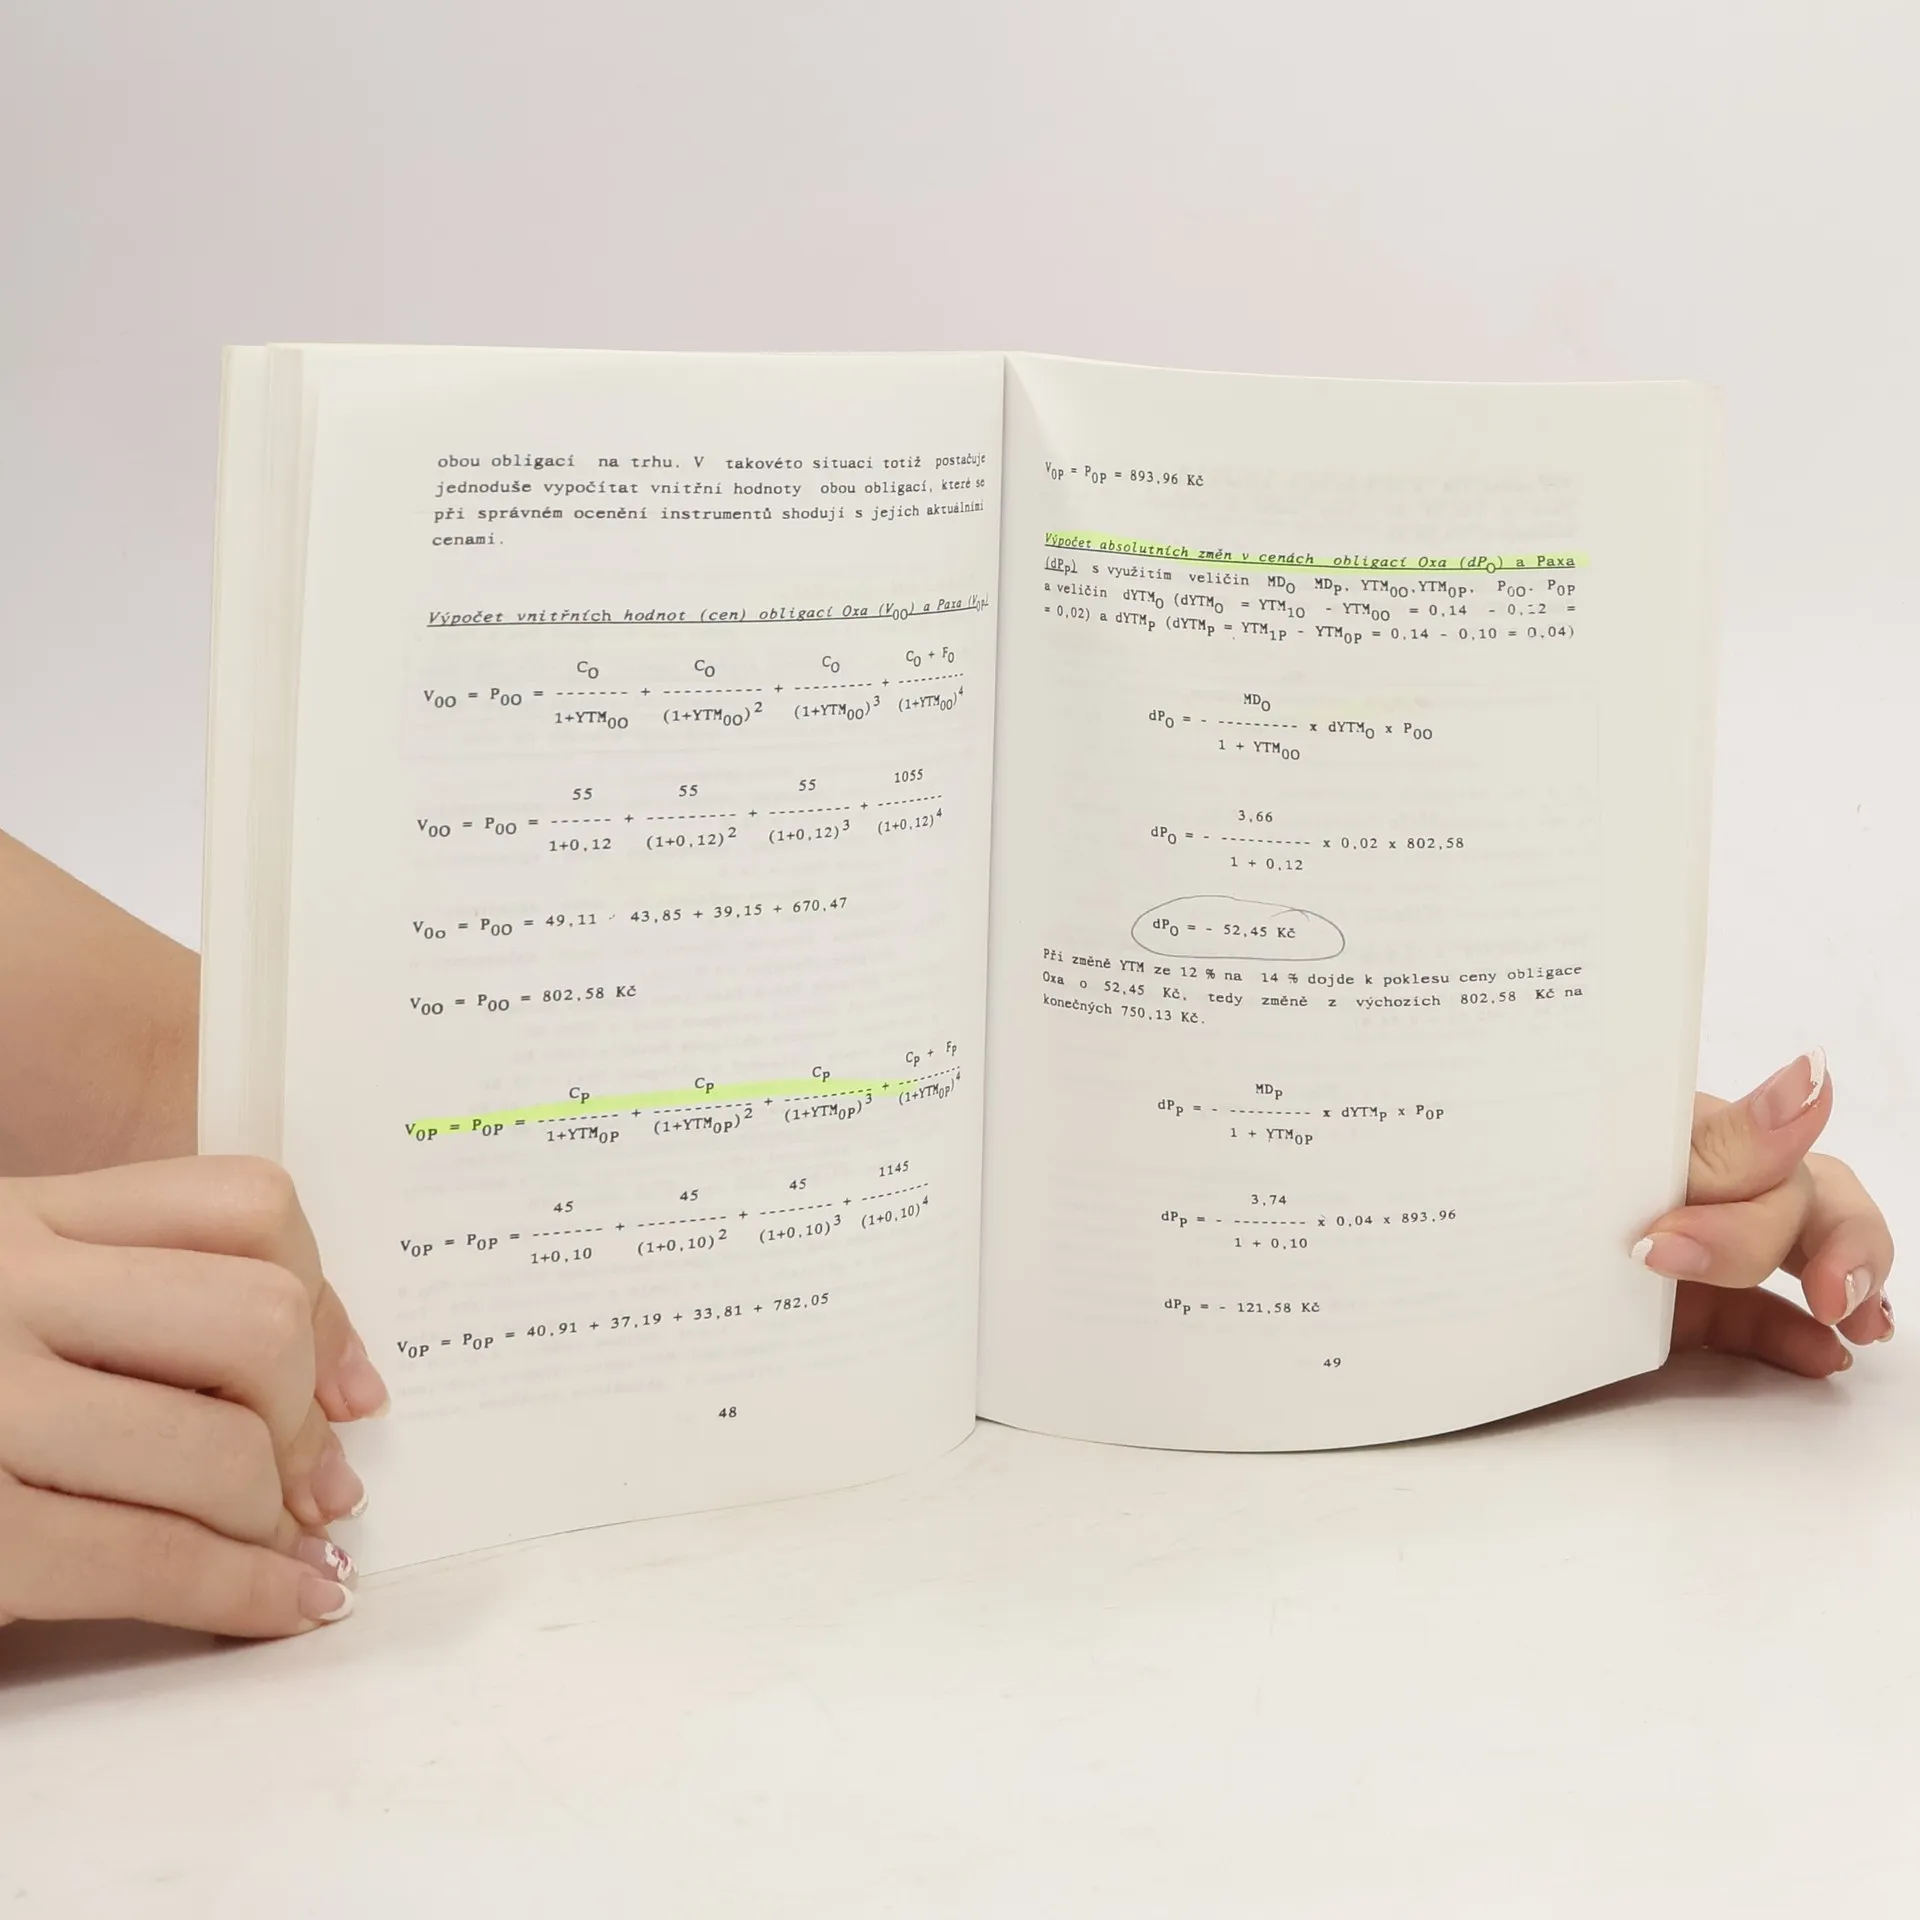 obou obligací na trhu. V takovéto situaci totiž postačuje
jednoduše vypočítat vnitřní hodnoty obou obligací, které se
při správném ocenění instrumentů shodují s jejich aktuálními
cenami.
Výpočet vnitřních hodnot (cen) obligací Oxa (V00) a Paxa (V0P)
CO CO CO CO + FO
VOO = POO = -------- + ---------- + --------- + ---------
1+YTMOO (1+YTMOO)2 (1+YTMOO)3 (1+YTMOO)4
55 55 55 1055
VOO = POO = ------- + ---------- + --------- + ---------
1+0,12 (1+0,12)2 (1+0,12)3 (1+0,12)4
VOO = POO = 49,11 - 43,85 + 39,15 + 670,47
VOO = POO = 802,58 Kč
CP CP CP CP + FP
VOP = POP = -------- + ---------- + --------- + ---------
1+YTMOP (1+YTMOP)2 (1+YTMOP)3 (1+YTMOP)4
45 45 45 1145
VOP = POP = -------- + ---------- + --------- + ---------
1+0,10 (1+0,10)2 (1+0,10)3 (1+0,10)4
VOP = POP = 40,91 + 37,19 + 33,81 + 782,05
48
VOP = POP = 893,96 Kč
Výpočet absolutních změn v cenách obligací Oxa (dPO) a Paxa
(dPP) s využitím veličin MDO MDP, YTMOO,YTMOP, POO, POP
a veličin dYTMO (dYTMO = YTM1O - YTMOO = 0,14 - 0,12 =
= 0,02) a dYTMP (dYTMP = YTM1P - YTMOP = 0,14 - 0,10 = 0,04)
MDO
dPO = - --------- x dYTMO x POO
1 + YTMOO
3,66
dPO = - ---------- x 0,02 x 802,58
1 + 0,12
dPO = - 52,45 Kč
Při změně YTM ze 12 % na 14 % dojde k poklesu ceny obligace
Oxa o 52,45 Kč, tedy změně z výchozích 802,58 Kč na
konečných 750,13 Kč.
MDP
dPP = - --------- x dYTMP x POP
1 + YTMOP
3,74
dPP = - -------- x 0,04 x 893,96
1 + 0,10
dPP = - 121,58 Kč
49